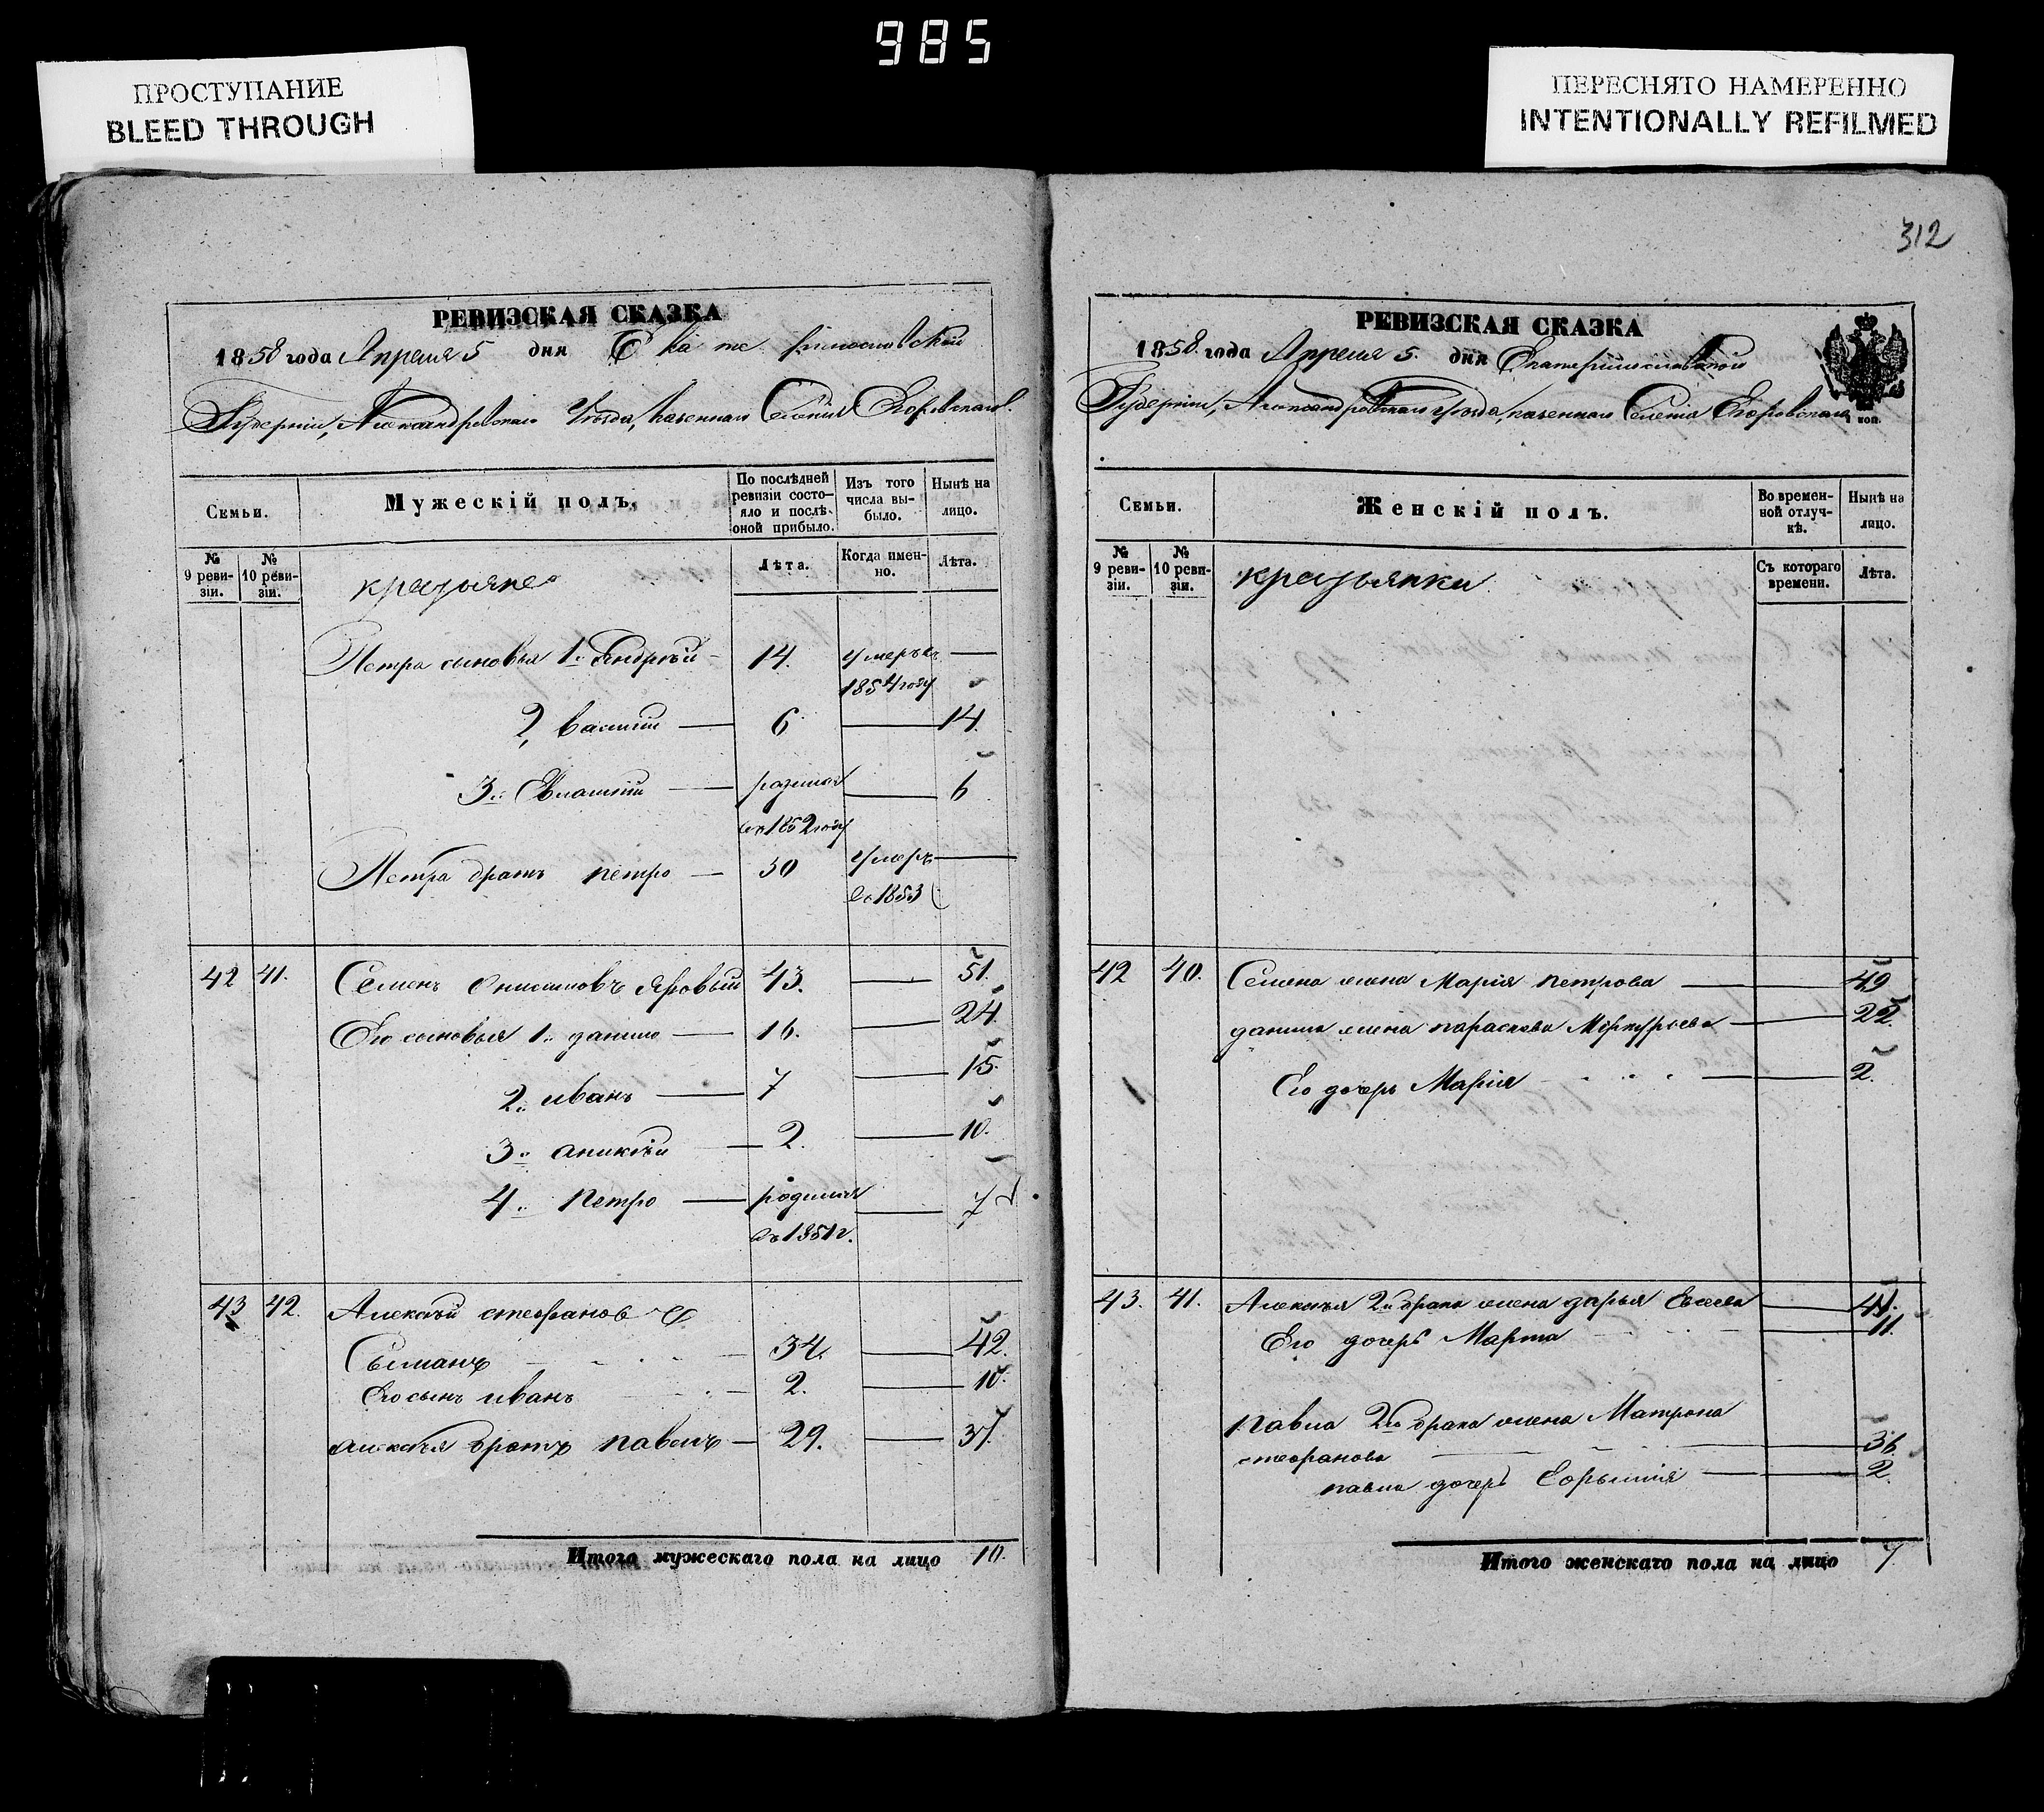 985
ПРОСТУПАНИЕ
BLEED THROUGH
ПЕРЕСНЯТО НАМЕРЕННО
INTENTIONALLY REFILMED
РЕВИЗСКАЯ СКАЗКА
1858 года Апреля 5 дня Екатеринославской
Губерніи, Александровскаго Уезда, казеннаго Селенія Егоровскаго.
Семьи.
Мужескій полъ,
По послѣдней ревизіи состо-
яло и послѣ
оной прибыло.
Изъ того
числа вы-
было.
Нынѣ на
лицо.
№
9 реви-
зіи.
№
10 реви-
зіи.
Лѣта.
Когда имен-
но.
Лѣта.
Петра сыновья 1. Андрѣй 14. умеръ въ —
1854 году
2, Василий — 6 — 14.
3. — родился — 6
въ 1852 году
Петра братъ Петро — 30 умеръ —
въ 1853
42 41. Семенъ Онисимовъ Яровый 43. — 51.
Его сыновья 1. Данило — 16. — 24.
2. Иванъ — 7 — 15.
3. Аникѣй — 2. — 10.
4. Петро — родился — 7
въ 1851 г.
43 42. Алексѣй Стефановъ
34. — 42.
Его сынъ Иванъ 2. — 10.
Алексѣя братъ Павелъ — 29. — 37.
Итого мужескаго пола на лицо 10.
312
РЕВИЗСКАЯ СКАЗКА
1858. года Апреля 5. дня Екатеринославской
Губерніи, Александровскаго Уезда, казеннаго Селенія Егоровскаго,
1 коп.
Семьи.
Женскій полъ.
Во времен-
ной отлуч-
кѣ.
Нынѣ на
лицо.
№
9 реви-
зіи.
№
10 реви-
зіи.
Съ котораго
времени.
Лѣта.
42 40. Семена жена Марія Петрова — 49
Данила жена Параскева Меркурьева — 22.
Его дочерь Марія — 2.
43. 41. Алексѣя 2го брака жена Дарья Евсеева — 41.
Его дочерь Марта — 11.
Павла 2го брака жена Матрона
Стефанова — 36.
Павла дочерь — 2.
Итого женскаго пола на лицо 7